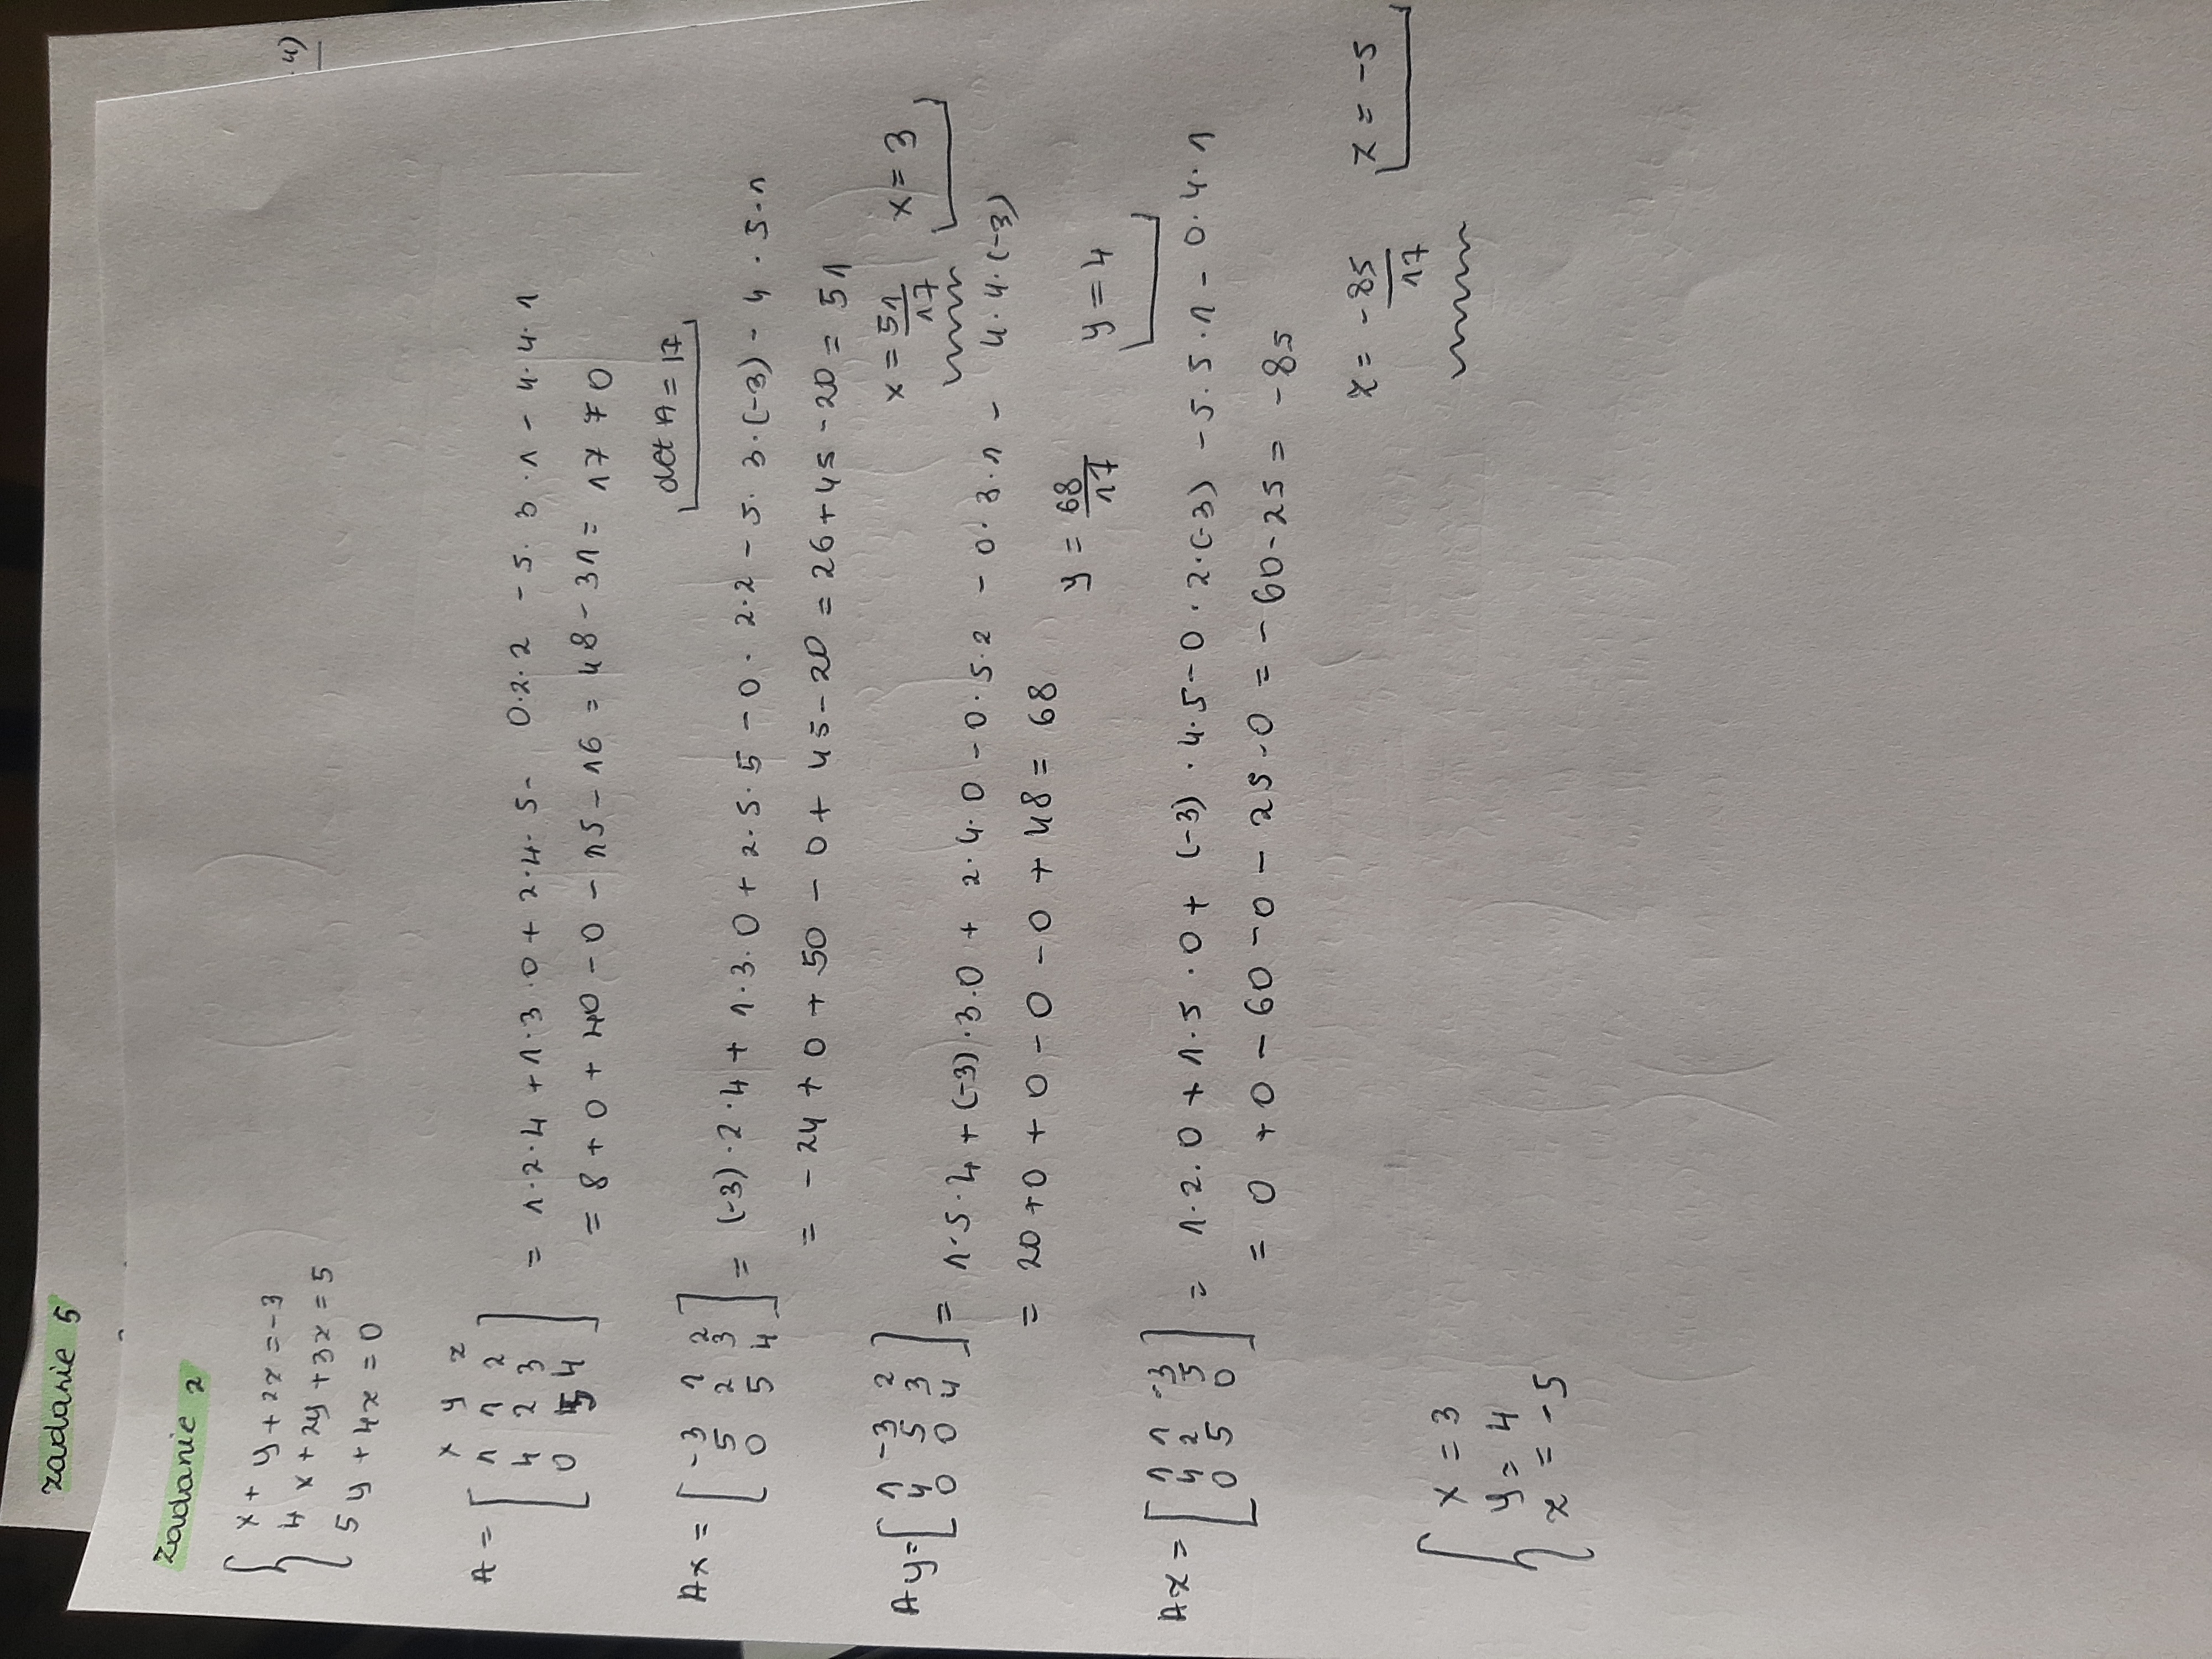 zadanie 5
Zadanie 2
x + y + 2z = -3
4x + 2y + 3z = 5
5y + 4z = 0
. 4)
x y z
A = [ 1 1 2
4 2 3
0 5 4 ] = 1·2·4 + 1·3·0 + 2·4·5 - 0·2·2 - 5·3·1 - 4·4·1
= 8 + 0 + 40 - 0 - 15 - 16 = 48 - 31 = 17 ≠ 0
det A = 17
Ax = [ -3 1 2
5 2 3
0 5 4 ] = (-3)·2·4 + 1·3·0 + 2·5·5 - 0·2·2 - 5·3·(-3) - 4·5·1
= -24 + 0 + 50 - 0 + 45 - 20 = 26 + 45 - 20 = 51
x = 51/17 x = 3
Ay = [ 1 -3 2
4 5 3
0 0 4 ] = 1·5·4 + (-3)·3·0 + 2·4·0 - 0·5·2 - 0·3·1 - 4·4·(-3)
= 20 + 0 + 0 - 0 - 0 + 48 = 68
y = 68/17 y = 4
Az = [ 1 1 -3
4 2 5
0 5 0 ] = 1·2·0 + 1·5·0 + (-3)·4·5 - 0·2·(-3) - 5·5·1 - 0·4·1
= 0 + 0 - 60 - 0 - 25 - 0 = -60 - 25 = -85
z = -85/17 z = -5
x = 3
y = 4
z = -5